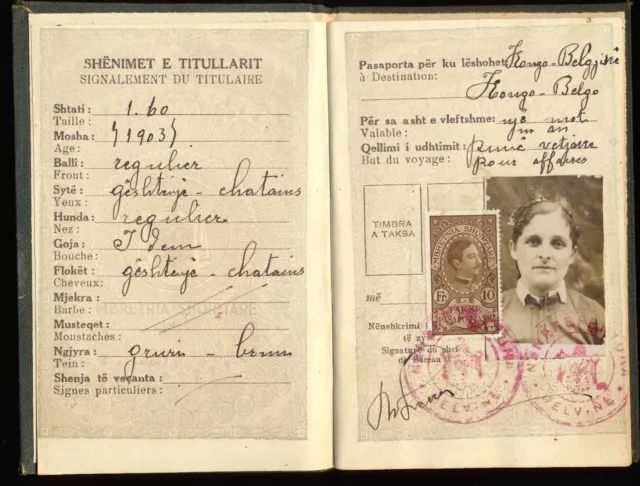 SHËNIMET E TITULLARIT
SIGNALEMENT DU TITULAIRE
Shtati : 1.60
Taille :
Mosha : (1903)
Age :
Balli : regulier
Front :
Sytë : gështenjë - chatains
Yeux :
Hunda : regulier
Nez :
Goja : Idem
Bouche :
Flokët : gështenjë - chatains
Cheveux :
Mjekra :
Barbe :
MBRETRIA SHQIPTARE
Musteqet :
Moustaches :
Ngjyra : grurin - brun
Tein :
Shenja të veçanta :
Signes particuliers :
3
Pasaporta për ku lëshohet Kongo-Belgjikë
à Destination : Kongo-Belgo
Për sa asht e vleftshme: një mot
Valable : un an
Qellimi i udhtimit: punë vetjake
But du voyage : pour affaires
TIMBRA
A TAKSA
MBRETNIA SHQIPTARE
Fr. 10
TAKSË
PASAPORTASH
më
Nënshkrimi
të zy
Signature du chef
de Bureau
DELVINË
DELVINË